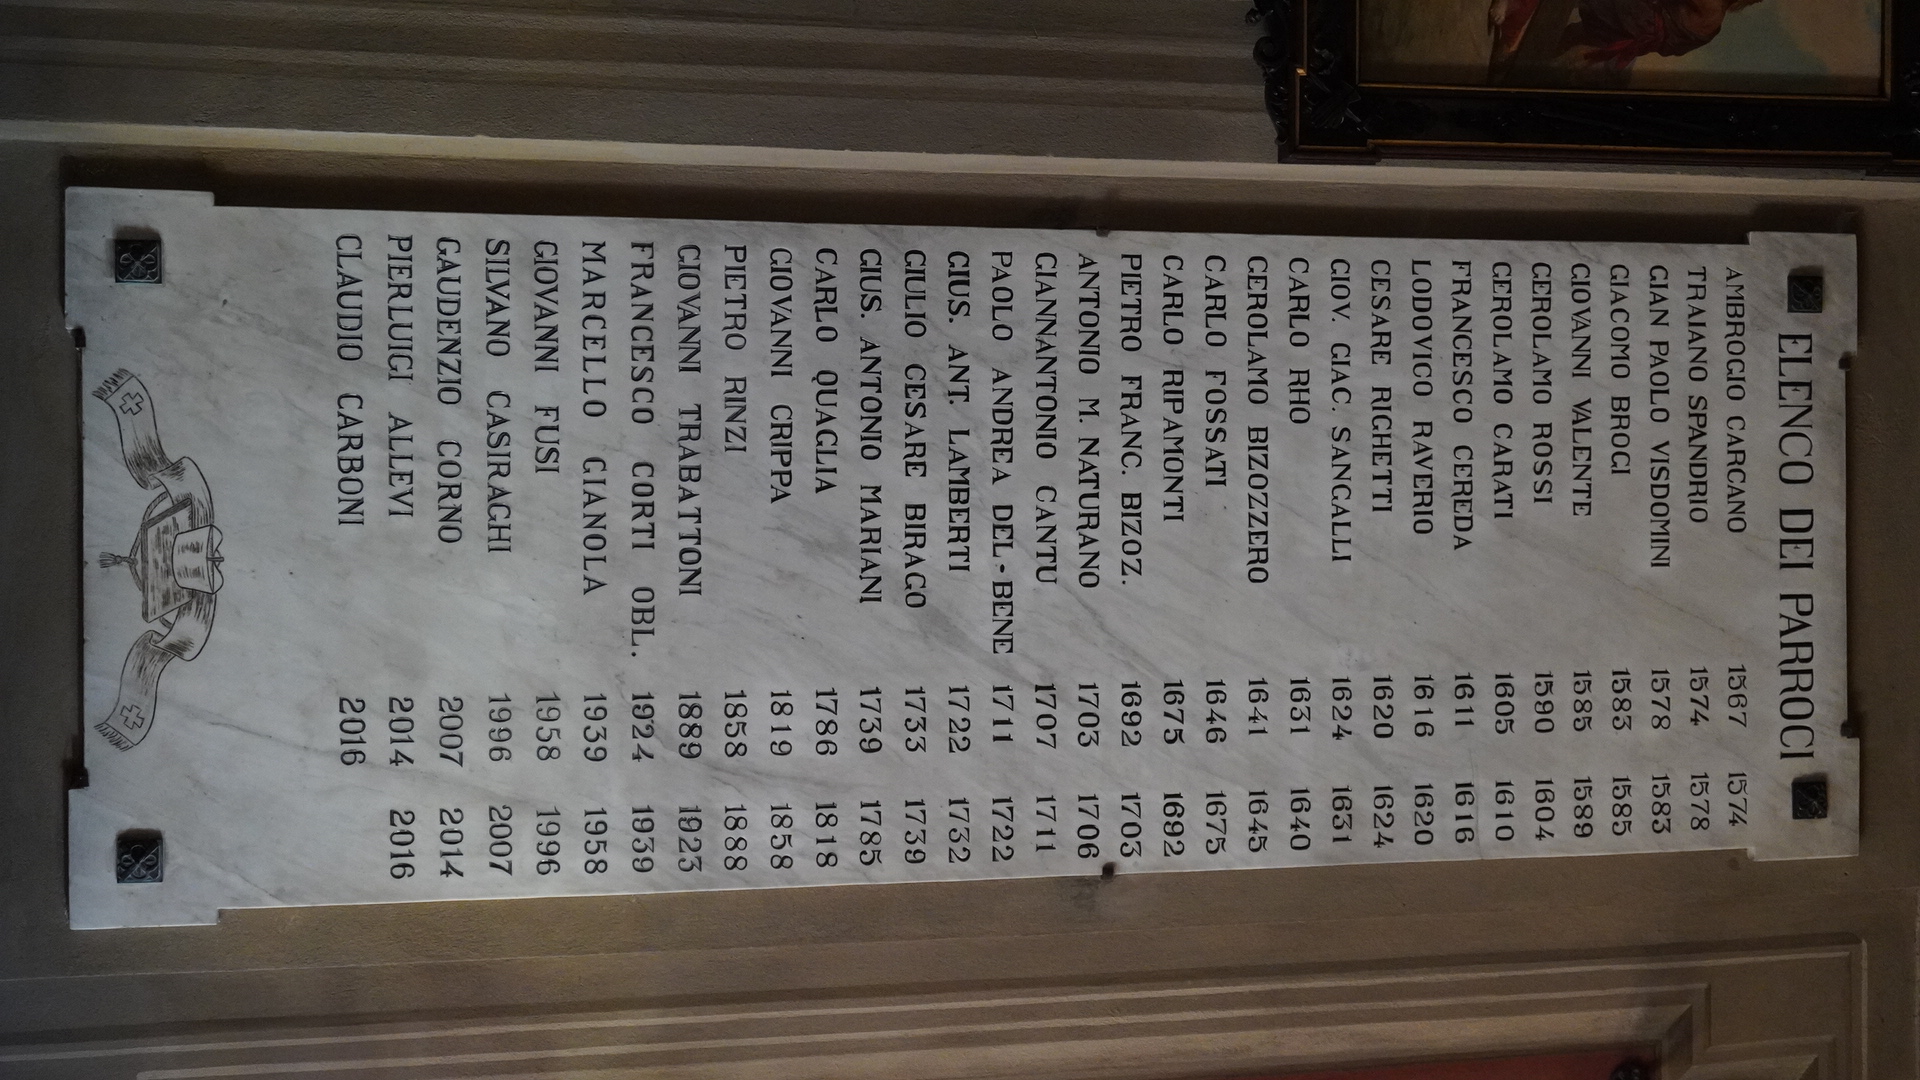 ELENCO DEI PARROCI
AMBROGIO CARCANO 1567 1574
TRAIANO SPANDRIO 1574 1578
GIAN PAOLO VISDOMINI 1578 1583
GIACOMO BROGI 1583 1585
GIOVANNI VALENTE 1585 1589
GEROLAMO ROSSI 1590 1604
GEROLAMO CARATI 1605 1610
FRANCESCO CEREDA 1611 1616
LODOVICO RAVERIO 1616 1620
CESARE RIGHETTI 1620 1624
GIOV. GIAC. SANGALLI 1624 1631
CARLO RHO 1631 1640
GEROLAMO BIZOZZERO 1641 1645
CARLO FOSSATI 1646 1675
CARLO RIPAMONTI 1675 1692
PIETRO FRANC. BIZOZ. 1692 1703
ANTONIO M. NATURANO 1703 1706
GIANNANTONIO CANTU 1707 1711
PAOLO ANDREA DEL-BENE 1711 1722
GIUS. ANT. LAMBERTI 1722 1732
GIULIO CESARE BIRAGO 1733 1739
GIUS. ANTONIO MARIANI 1739 1785
CARLO QUAGLIA 1786 1818
GIOVANNI CRIPPA 1819 1858
PIETRO RINZI 1858 1888
GIOVANNI TRABATTONI 1889 1923
FRANCESCO CORTI OBL. 1924 1939
MARCELLO GIANOLA 1939 1958
GIOVANNI FUSI 1958 1996
SILVANO CASIRAGHI 1996 2007
GAUDENZIO CORNO 2007 2014
PIERLUIGI ALLEVI 2014 2016
CLAUDIO CARBONI 2016